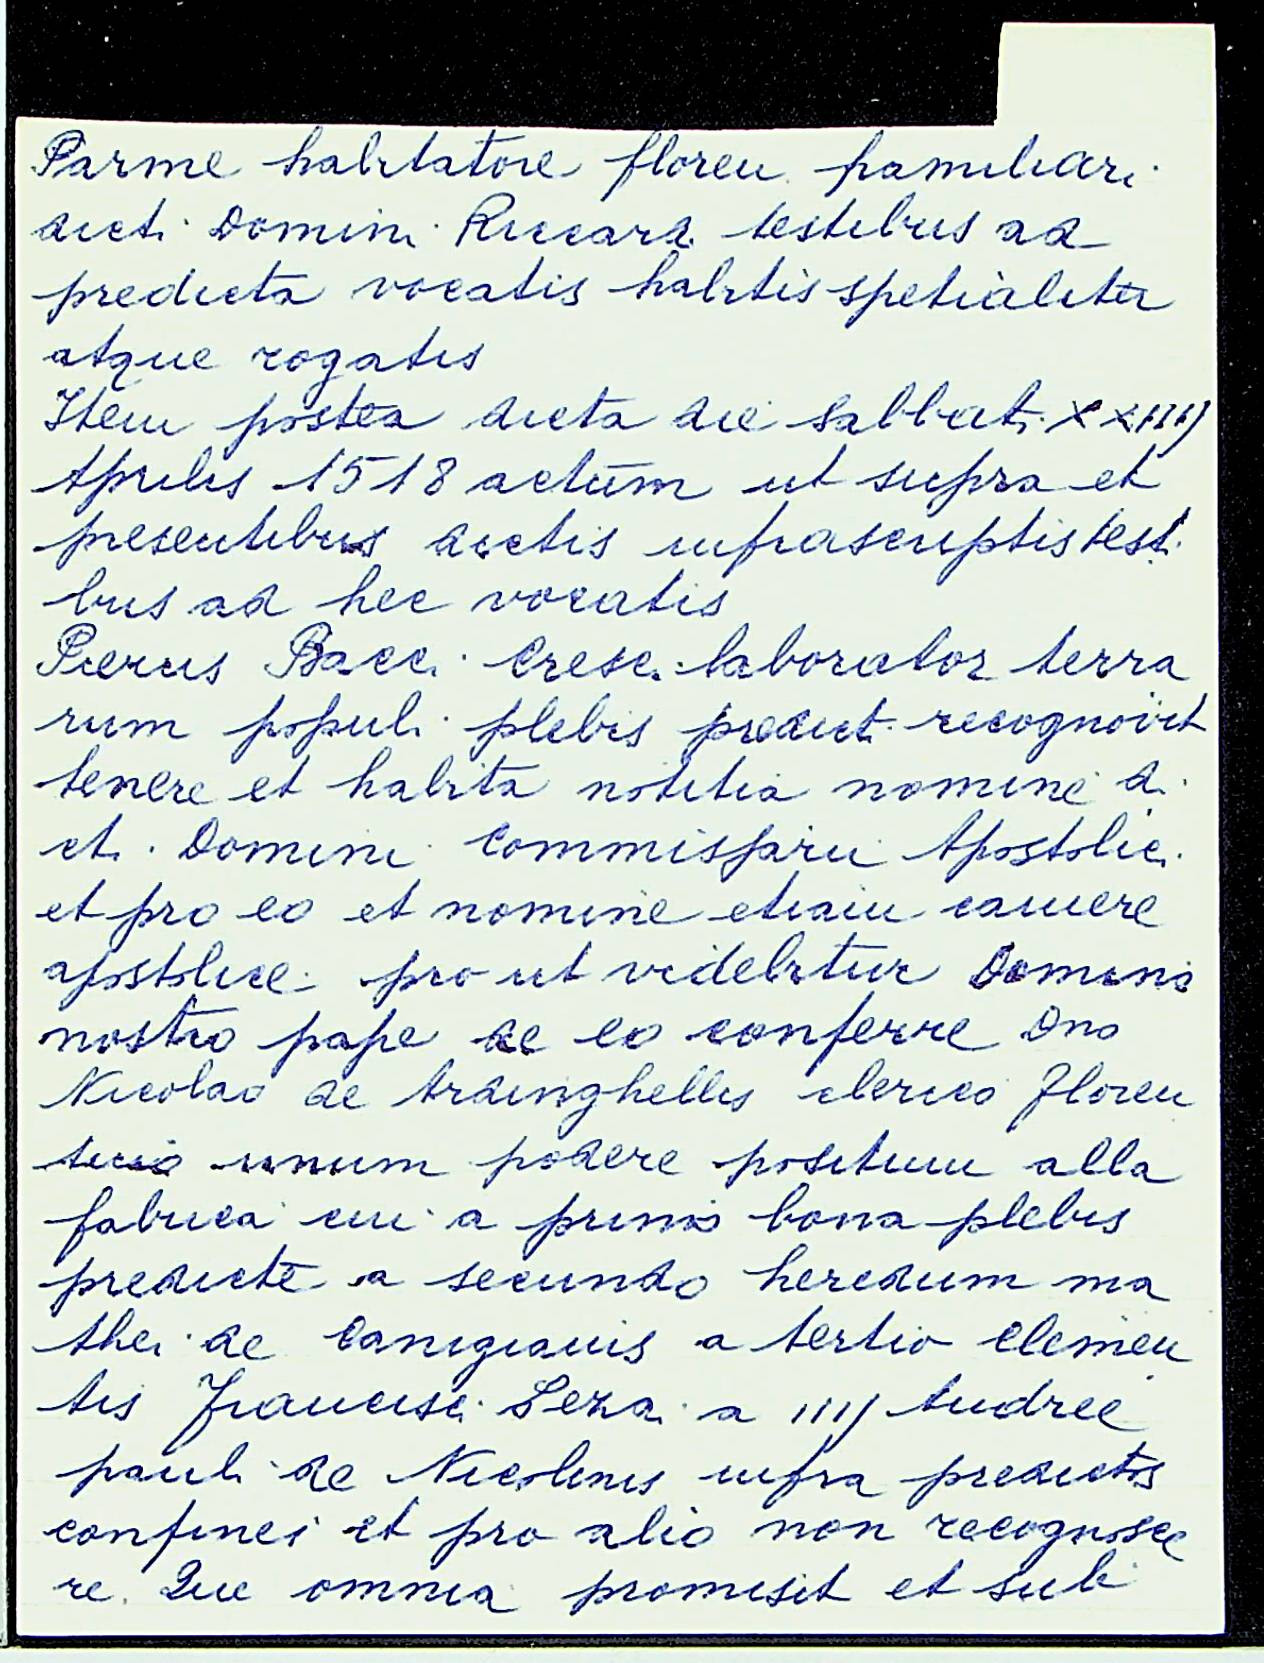 Parme habitatore floren familiari
dicti Domini Riccardi testibus ad
predicta vocatis habitis spetialiter
atque rogatis
Item postea dicta die sabbati XXIIIJ
Aprilis 1518 actum ut supra et
presentibus dictis infrascriptis testi
bus ad hec vocatis
Pierus Bacci Cresci laborator terra
rum populi plebis predict recognovit
tenere et habita notitia nomine di
cti Domini Commissarii Apostolici
et pro eo et nomine etiam camere
apostolice pro ut videbitur Domino
nostro pape de eo conferre Dno
Nicolao de Ardinghellis clerico Floren
tino unum podere positum alla
fabrica cui a primo bona plebis
predicte a secundo heredum ma
thei de Canigianis a tertio Clemen
tis Francisci a IIIJ Andree
pauli de Nicolinis infra predictos
confines et pro alio non recognosce
re. Que omnia promisit et sub